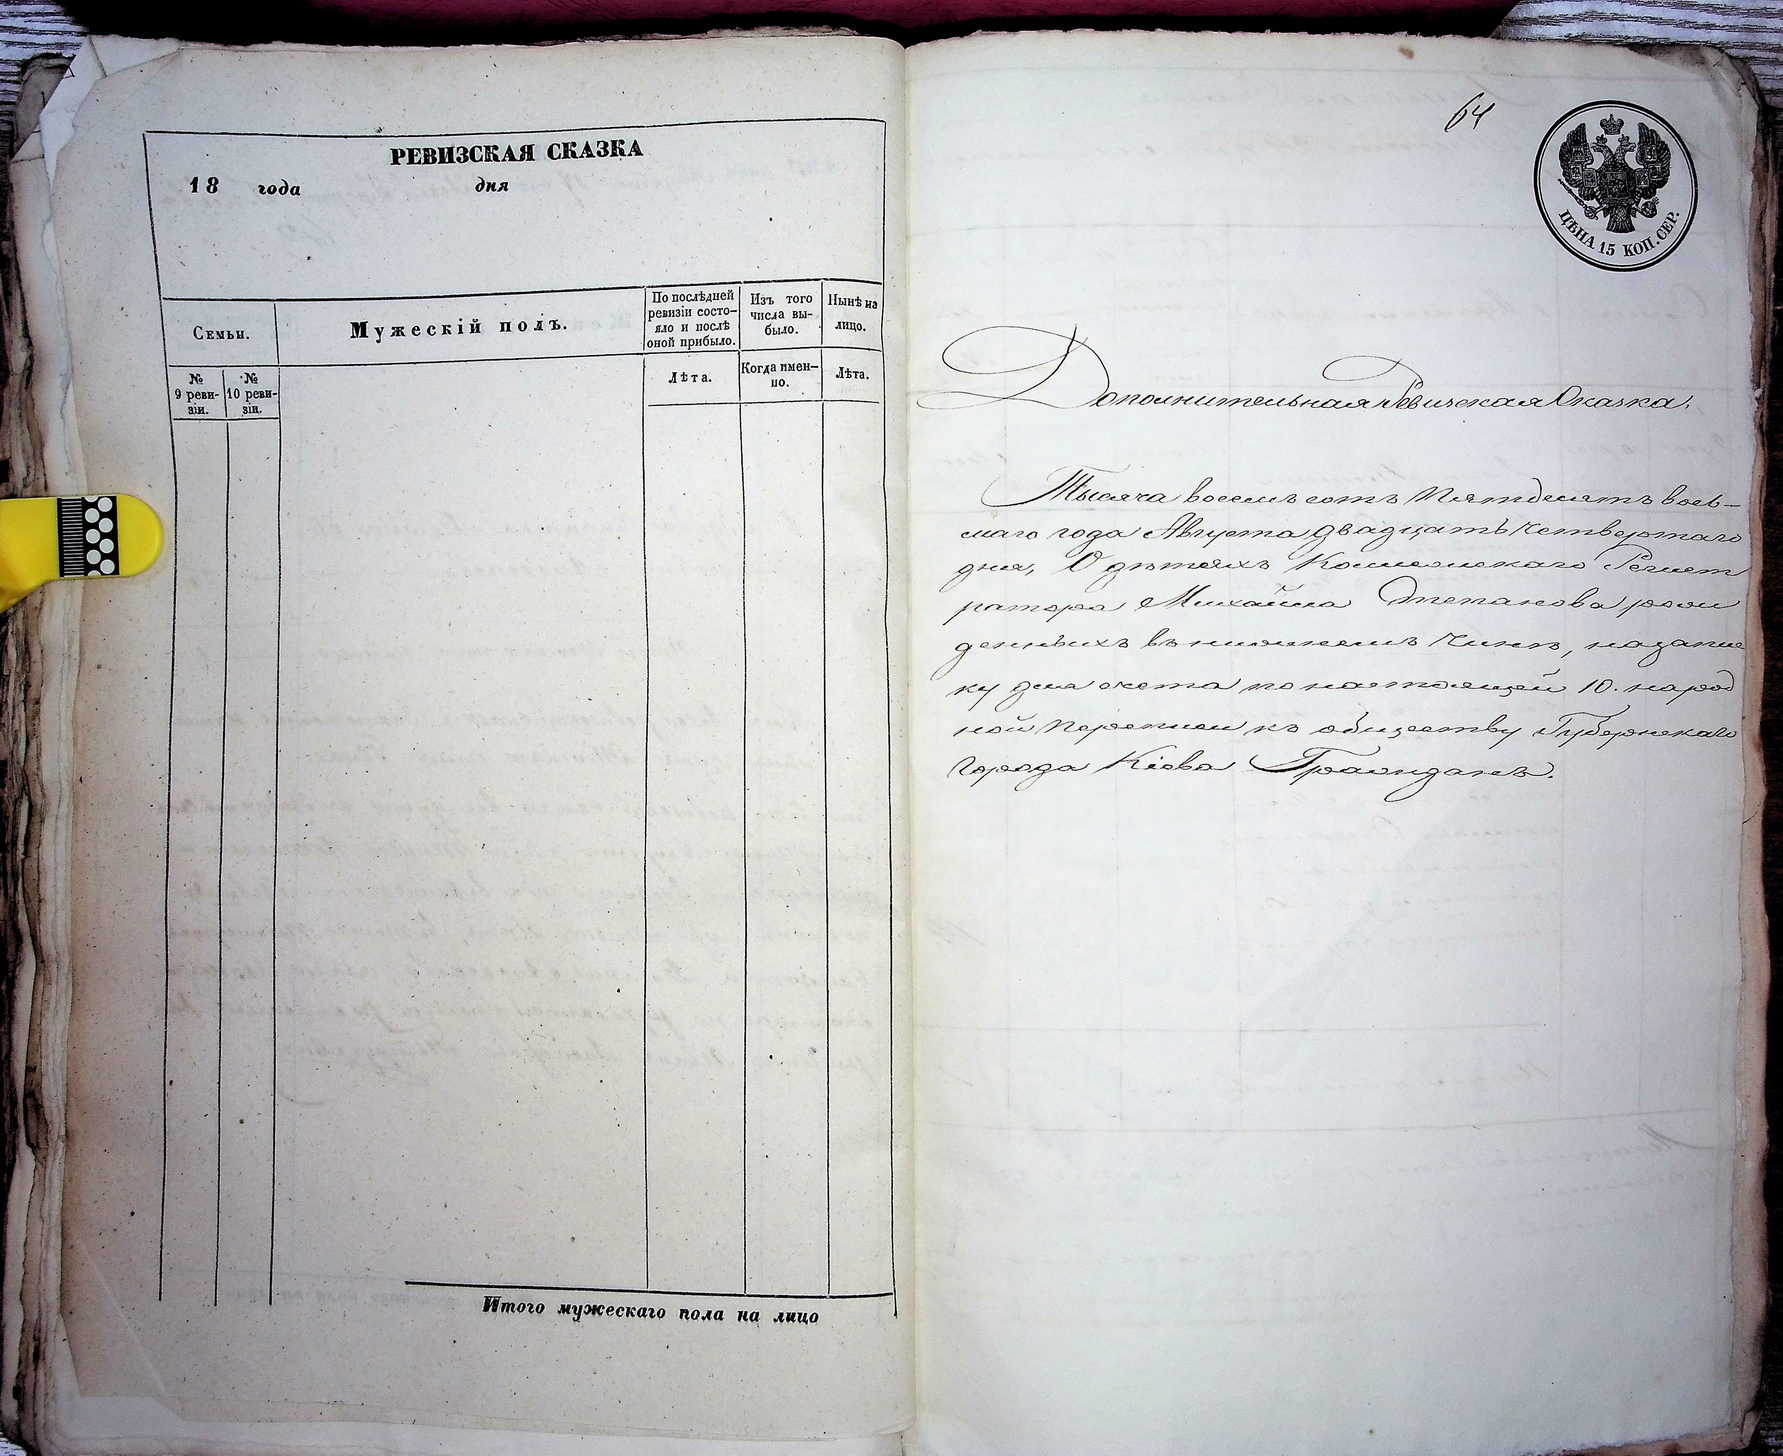 РЕВИЗСКАЯ СКАЗКА
18 года дня
Семьи.
Мужескій полъ.
По послѣдней ревизіи состо-
яло и послѣ
оной прибыло.
Изъ того
числа вы-
было.
Нынѣ на
лицо.
№
9 реви-
зіи.
№
10 реви-
зіи.
Лѣта.
Когда имен-
но.
Лѣта.
Итого мужескаго пола на лицо
64
ЦѢНА 15 КОП. СЕР.
Дополнительная Ревизская Сказка.
Тысяча восемь сотъ Пятьдесятъ вось-
маго года Августа двадцать четвертаго
дня, О дѣтяхъ Коллежскаго Регист
ратора Михайла Степанова рож
денныхъ въ нижнемъ чинѣ, на запис
ку для счета по настоящей 10. народ
ной переписи къ обществу Губернскаго
Города Кіева Гражданъ.